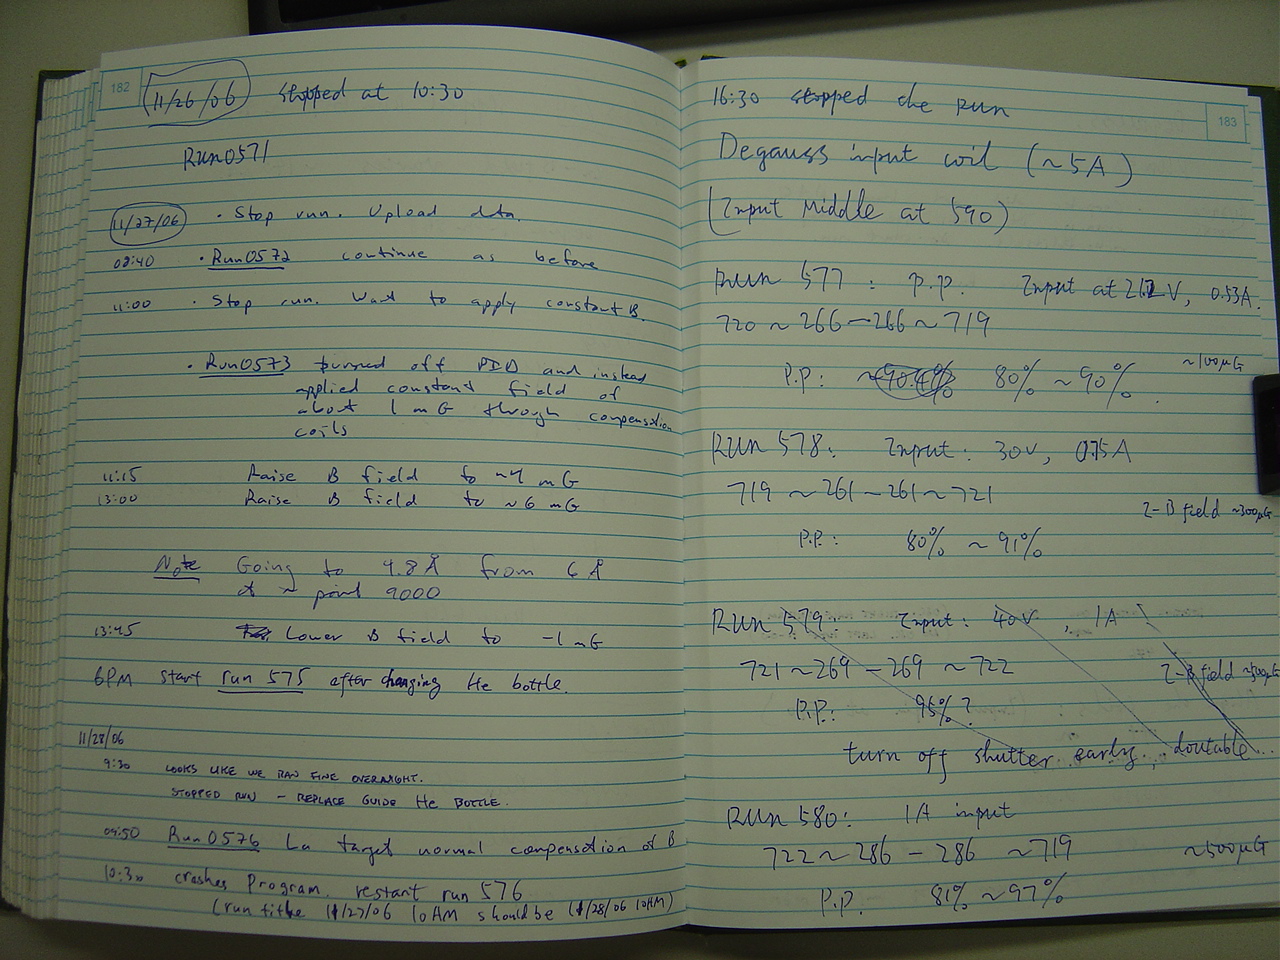 182
11/26/06 stopped at 10:30
Run0571
11/27/06 · Stop run. Upload data.
08:40 · Run0572 continue as before
11:00 · Stop run. Want to apply constant B.
· Run0573 turned off PID and instead
applied constant field of
about 1 mG through compensation
coils
11:15 Raise B field to ~4 mG
13:00 Raise B field to ~6 mG
Note Going to 4.8 Å from 6 Å
at ~ point 9000
13:45 Lower B field to -1 mG
6PM start run 575 after changing He bottle.
11/28/06
9:30 LOOKS LIKE WE RAN FINE OVERNIGHT.
STOPPED RUN - REPLACE GUIDE He BOTTLE.
09:50 Run0576 La target normal compensation of B
10:30 crashes Program. restart run 576
(run title 11/27/06 10AM should be 11/28/06 10AM)
183
16:30 stopped the run
Degauss input coil (~5A)
(Input Middle at 590)
Run 577: P.P. Input at 21.2V, 0.53A.
720 ~ 266 - 266 ~ 719
~100μG
P.P: ~90.4% 80% ~ 90%.
Run 578: Input: 30V, 0.75A
719 ~ 261 - 261 ~ 721
Z-B field ~300μG
P.P.: 80% ~ 91%
Run 579: Input: 40V, 1A
721 ~ 269 - 269 ~ 722
Z-B field ~500μG
P.P.: 95%?
turn off shutter early, doutable...
Run 580: 1A input
722 ~ 286 - 286 ~ 719
~500μG
P.P. 81% ~ 97%